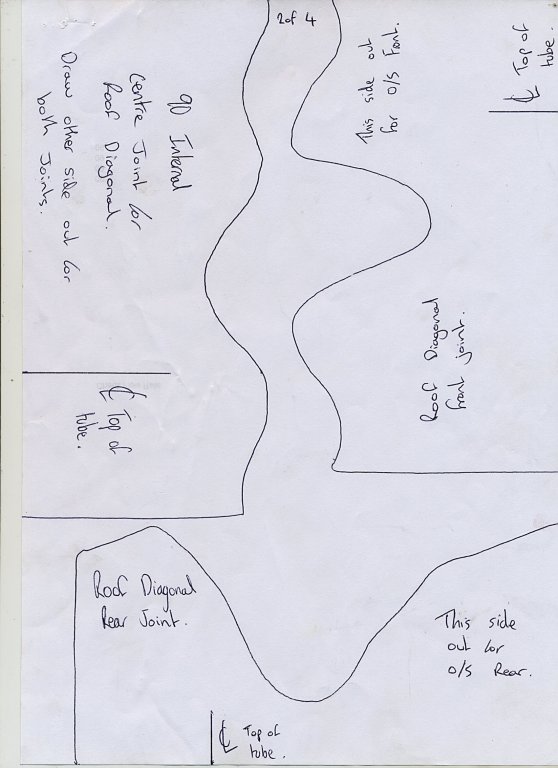 2 of 4
This side out
for O/S Front.
℄ Top of
tube.
90 Internal
Centre Joint for
Roof Diagonal.
Draw other side out for
both Joints.
Roof Diagonal
front joint.
℄ Top of
tube.
Roof Diagonal
Rear Joint.
This side
out for
O/S Rear.
℄ Top of
tube.